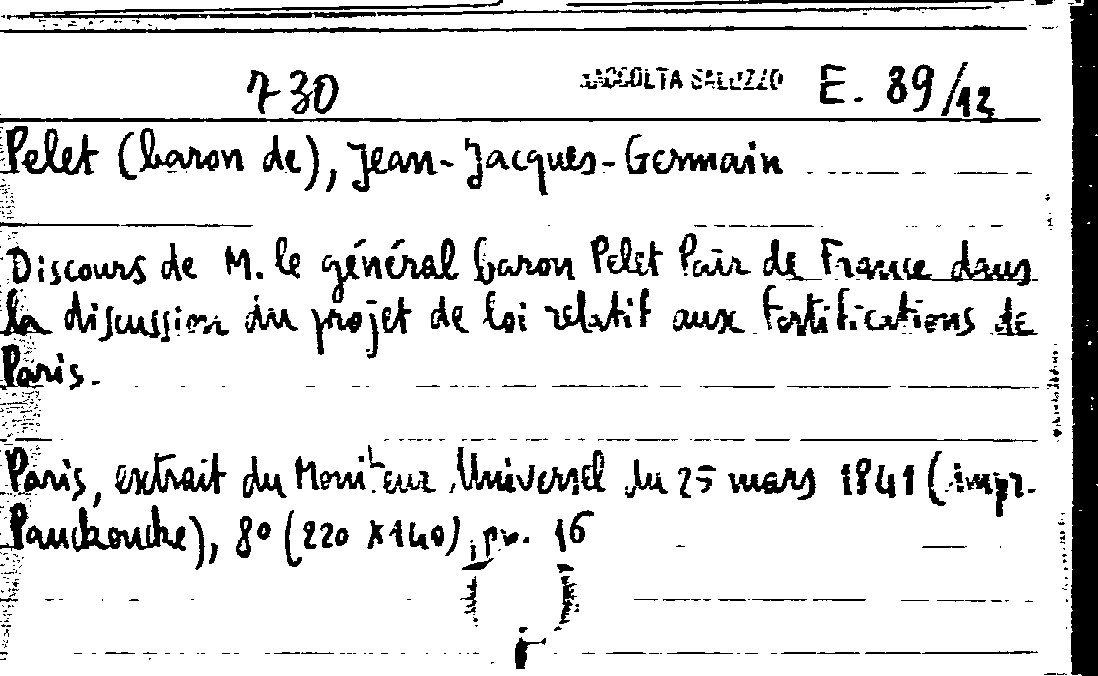 730 RACCOLTA SALUZZO E. 89/12
Pelet (baron de), Jean-Jacques-Germain
Discours de M. le général baron Pelet Pair de France dans
la discussion du projet de loi relatif aux fortifications de
Paris.
Paris, extrait du Moniteur Universel du 25 mars 1841 (impr.
Panckoucke), 8° (220 x 140), pp. 16